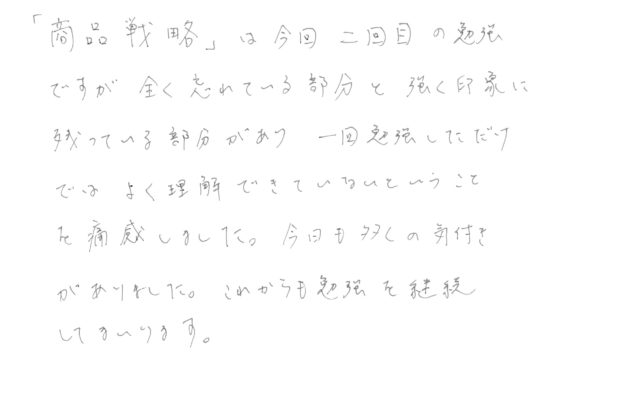 「商品戦略」は今回二回目の勉強
ですが全く忘れている部分と強く印象に
残っている部分があり一回勉強しただけ
ではよく理解できていないということ
を痛感しました。今日も多くの気付き
がありました。これからも勉強を継続
してまいります。